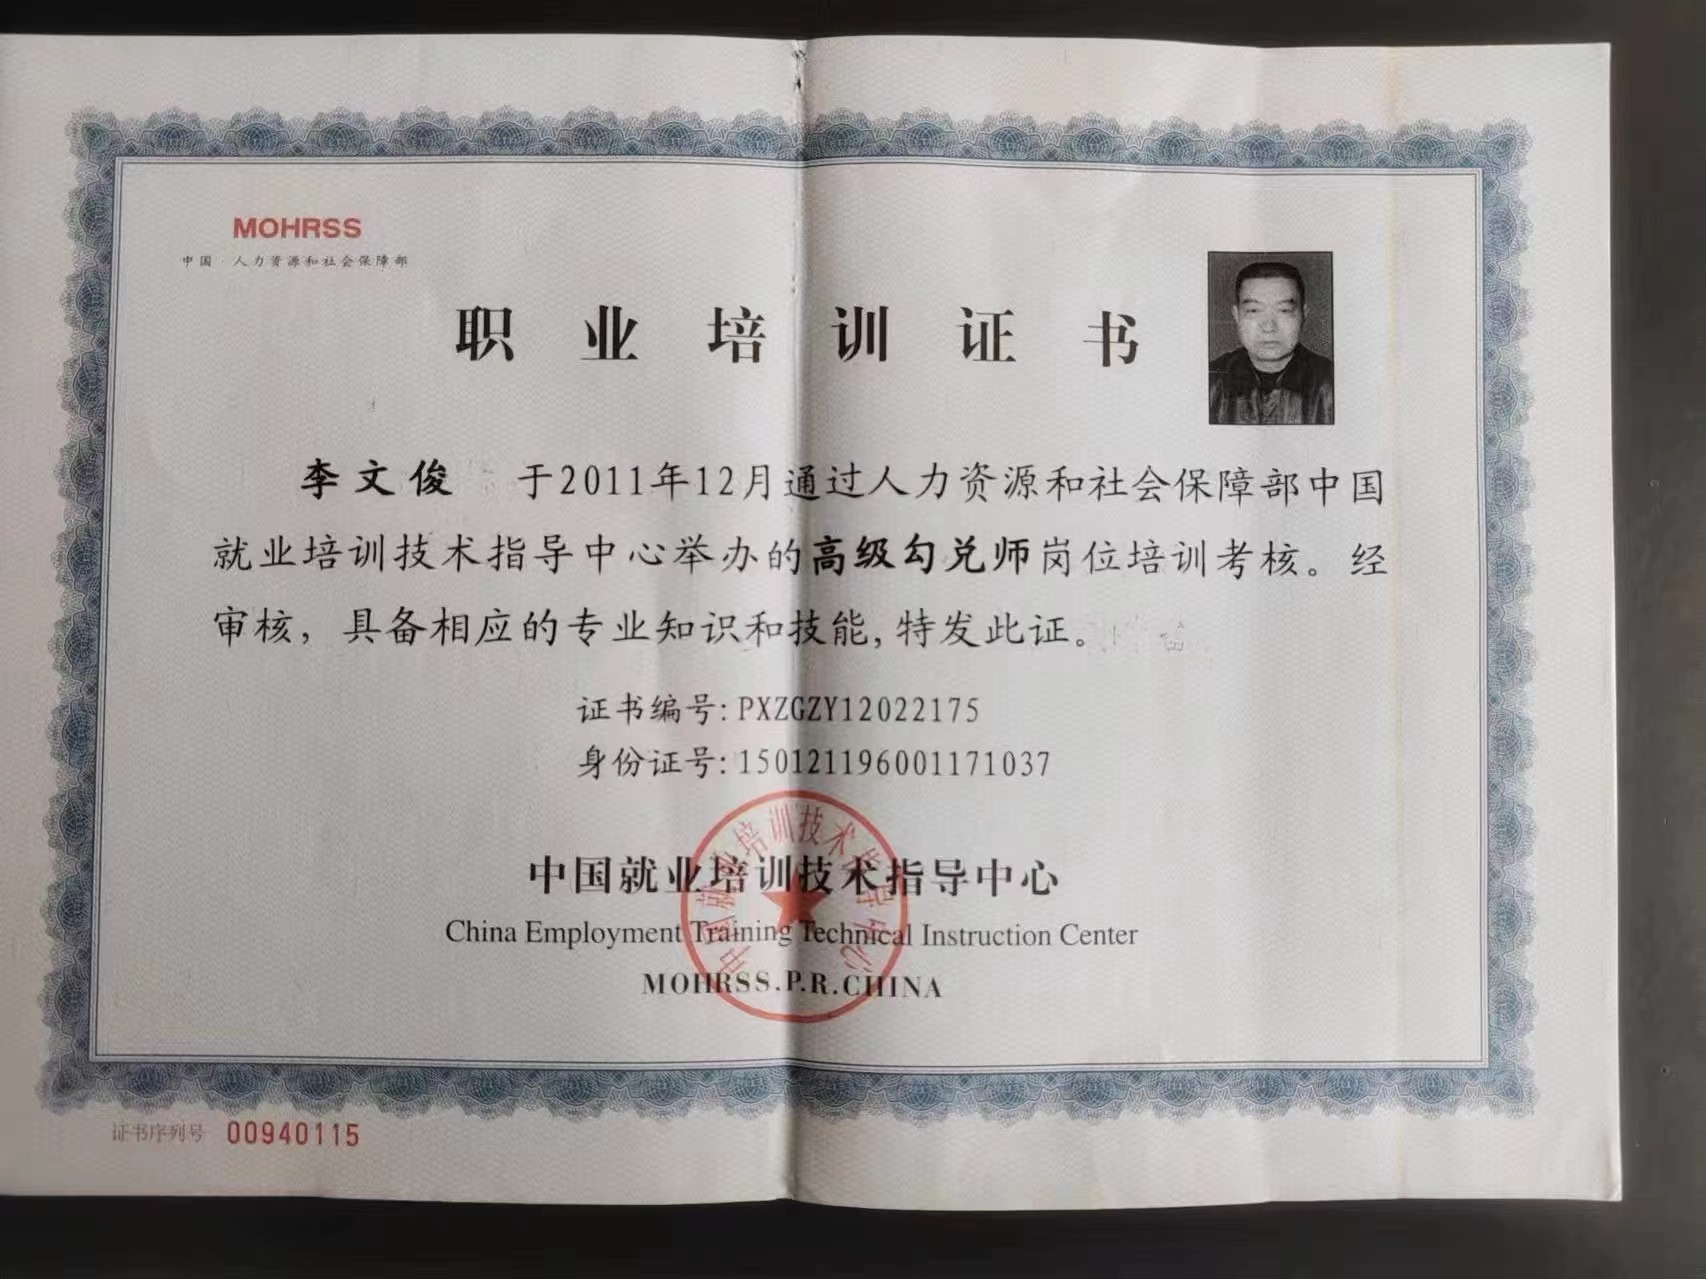 MOHRSS
中国·人力资源和社会保障部
职业培训证书
李文俊 于2011年12月通过人力资源和社会保障部中国
就业培训技术指导中心举办的高级勾兑师岗位培训考核。经
审核，具备相应的专业知识和技能,特发此证。
证书编号:PXZGZY12022175
身份证号:150121196001171037
中国就业培训技术指导中心
中国就业培训技术指导中心
China Employment Training Technical Instruction Center
MOHRSS.P.R.CHINA
证书序列号 00940115